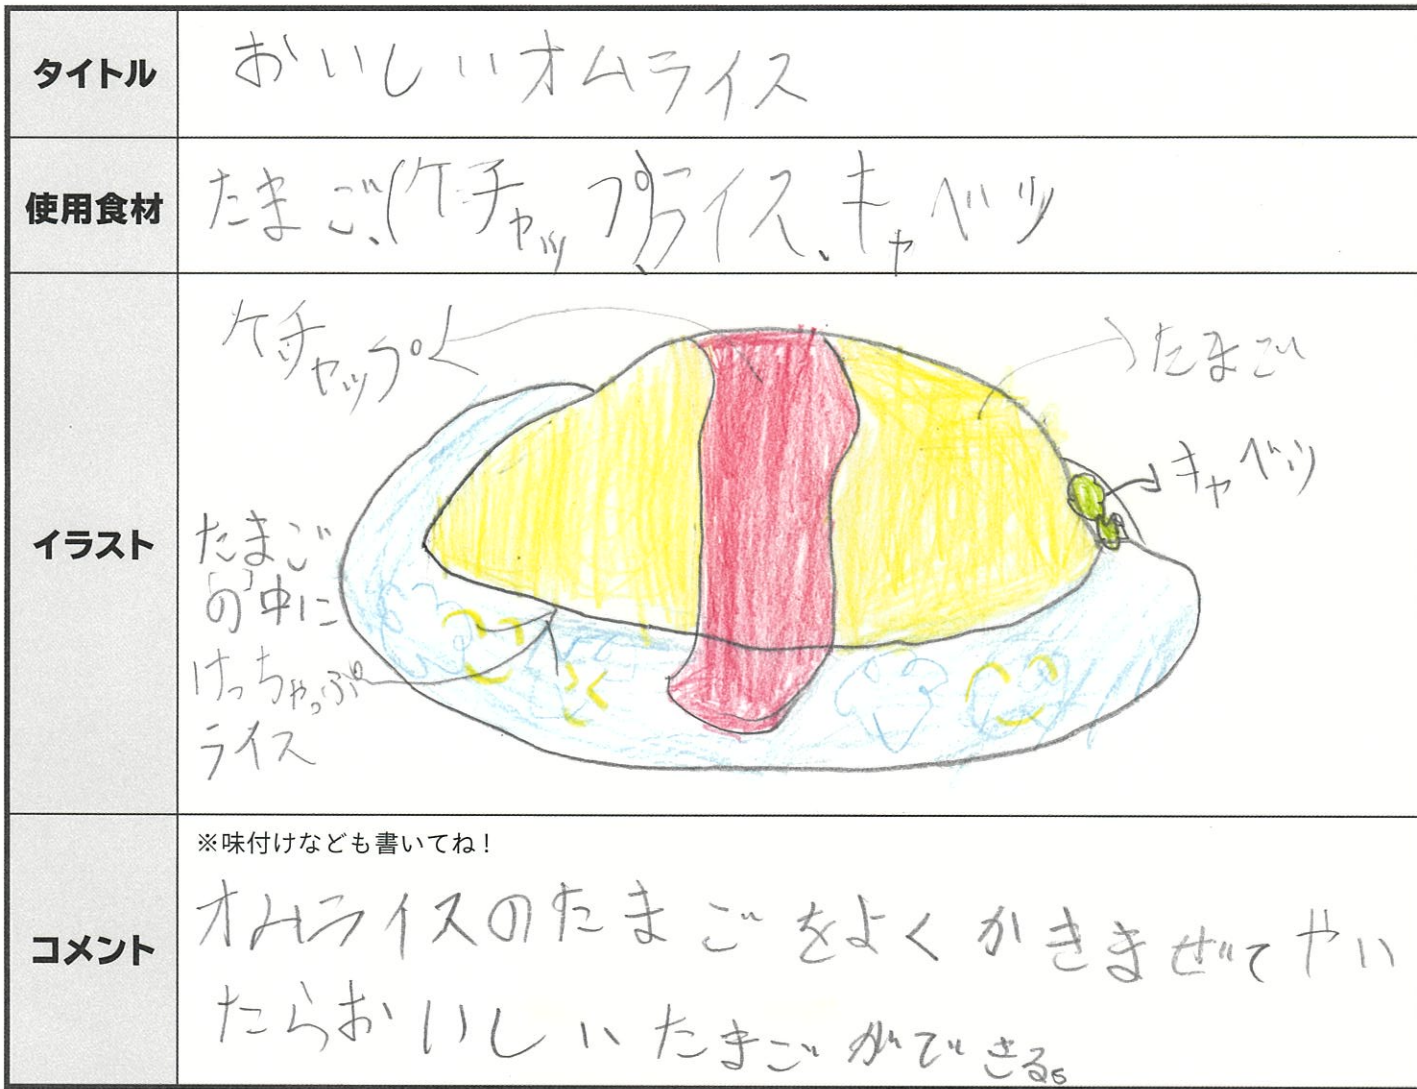 タイトル
おいしいオムライス
使用食材
たまご、(ケチャップ)ライス、キャベツ
イラスト
ケチャップ
たまご
キャベツ
たまご
の中に
けっちゃっぷ
ライス
コメント
※味付けなども書いてね!
オムライスのたまごをよくかきまぜてやい
たらおいしいたまごができる。